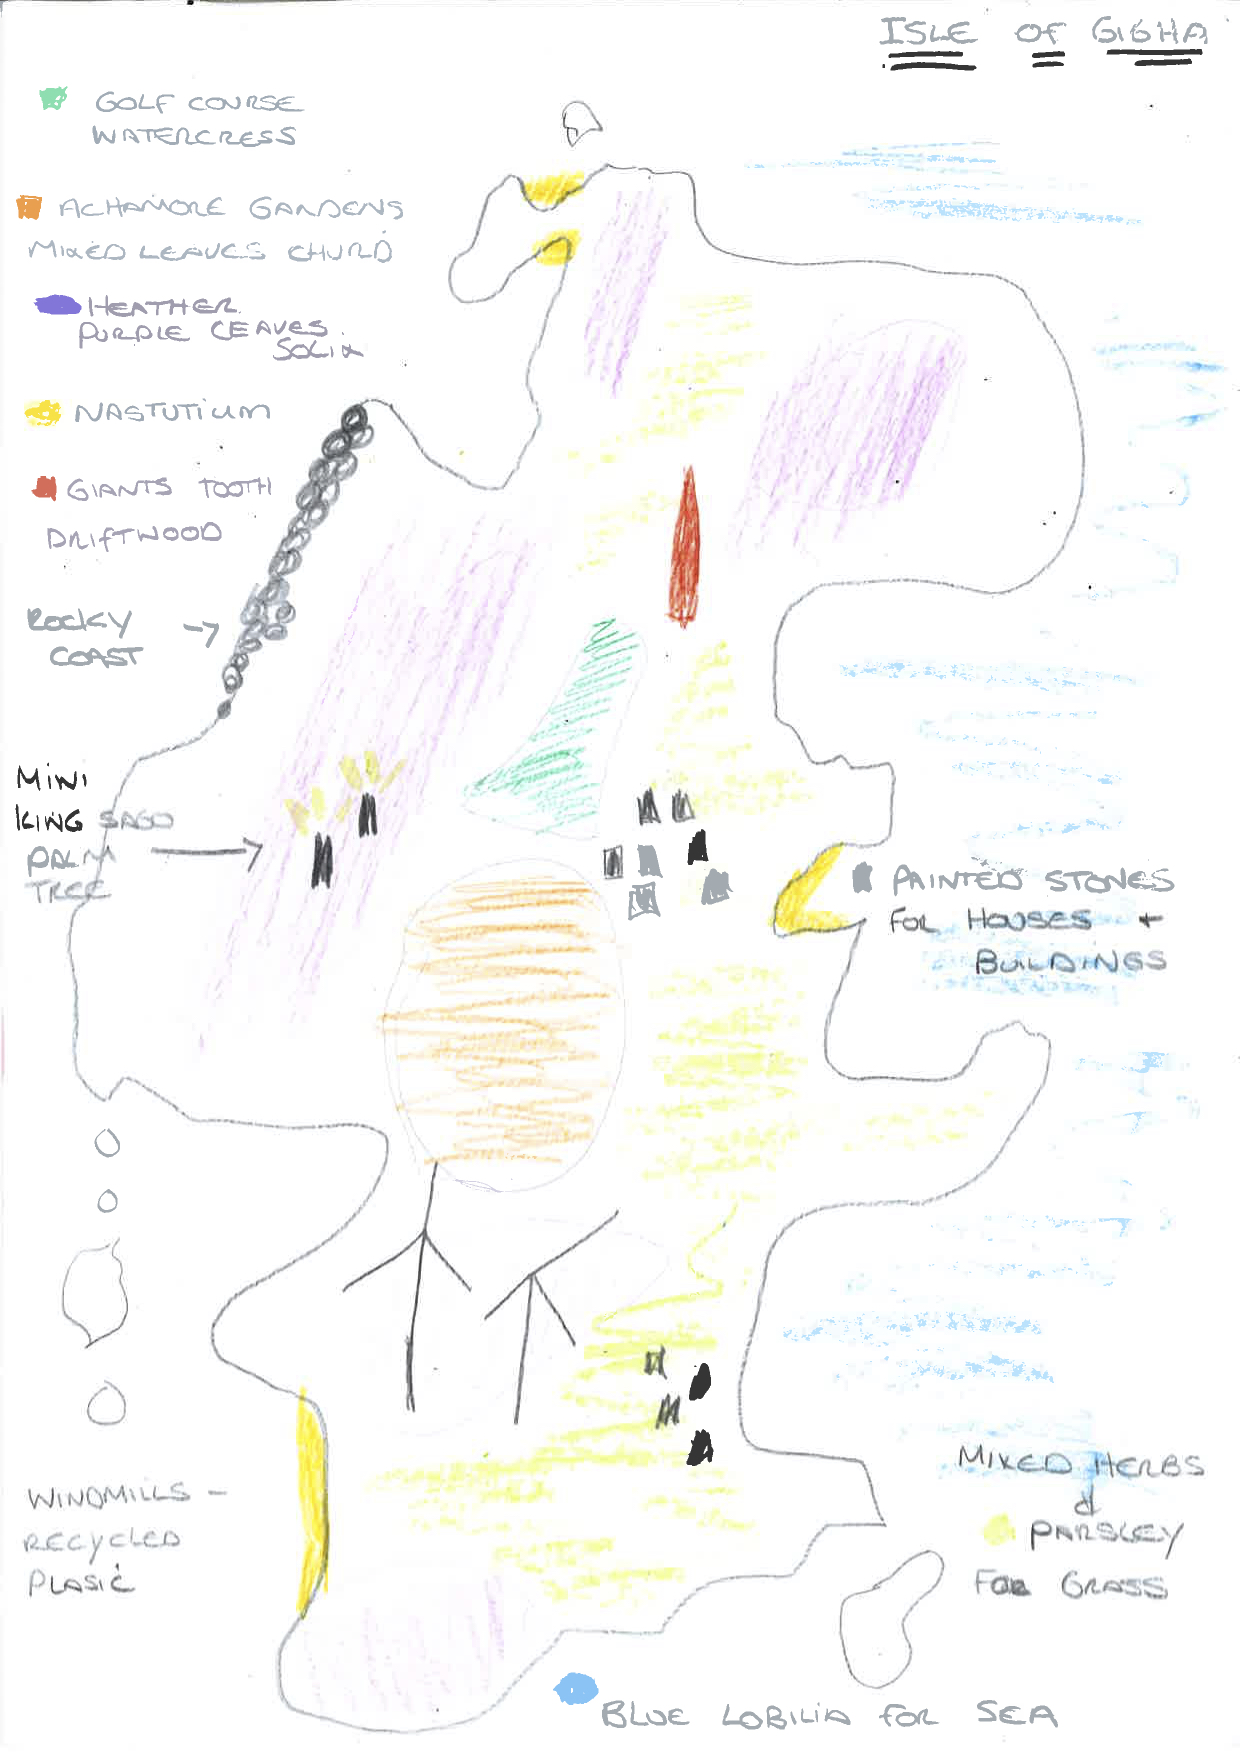 ISLE OF GIGHA
GOLF COURSE
WATERCRESS
ACHAMORE GARDENS
MIXED LEAVES CHURD
HEATHER
PURPLE LEAVES.
SOLIA
NASTUTIUM
GIANTS TOOTH
DRIFTWOOD
ROCKY
COAST
MINI
KING SAGO
PALM
TREE
PAINTED STONES
FOR HOUSES +
BUILDINGS
WINDMILLS -
RECYCLED
PLASIC
MIXED HERBS
&
PARSLEY
FOR GRASS
BLUE LOBILIA FOR SEA